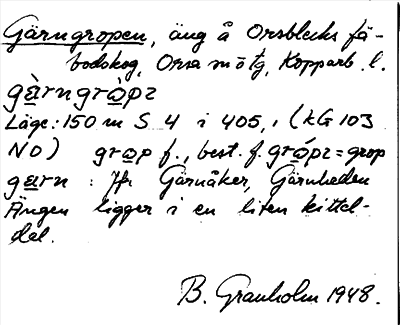 Gärngropen, äng å Orsblecks fä-
bodskog, Orsa m ö tg, Kopparb. l.
gὰrngrὼpɪ
Läge: 150 m S 4 i 405, i (kG 103
NO) grɷp f., best. f. grɷ́pɪ = grop
garn : Jfr Gärnåker, Gärnheden
Ängen ligger i en liten kittel-
dal.
B. Granholm 1948.